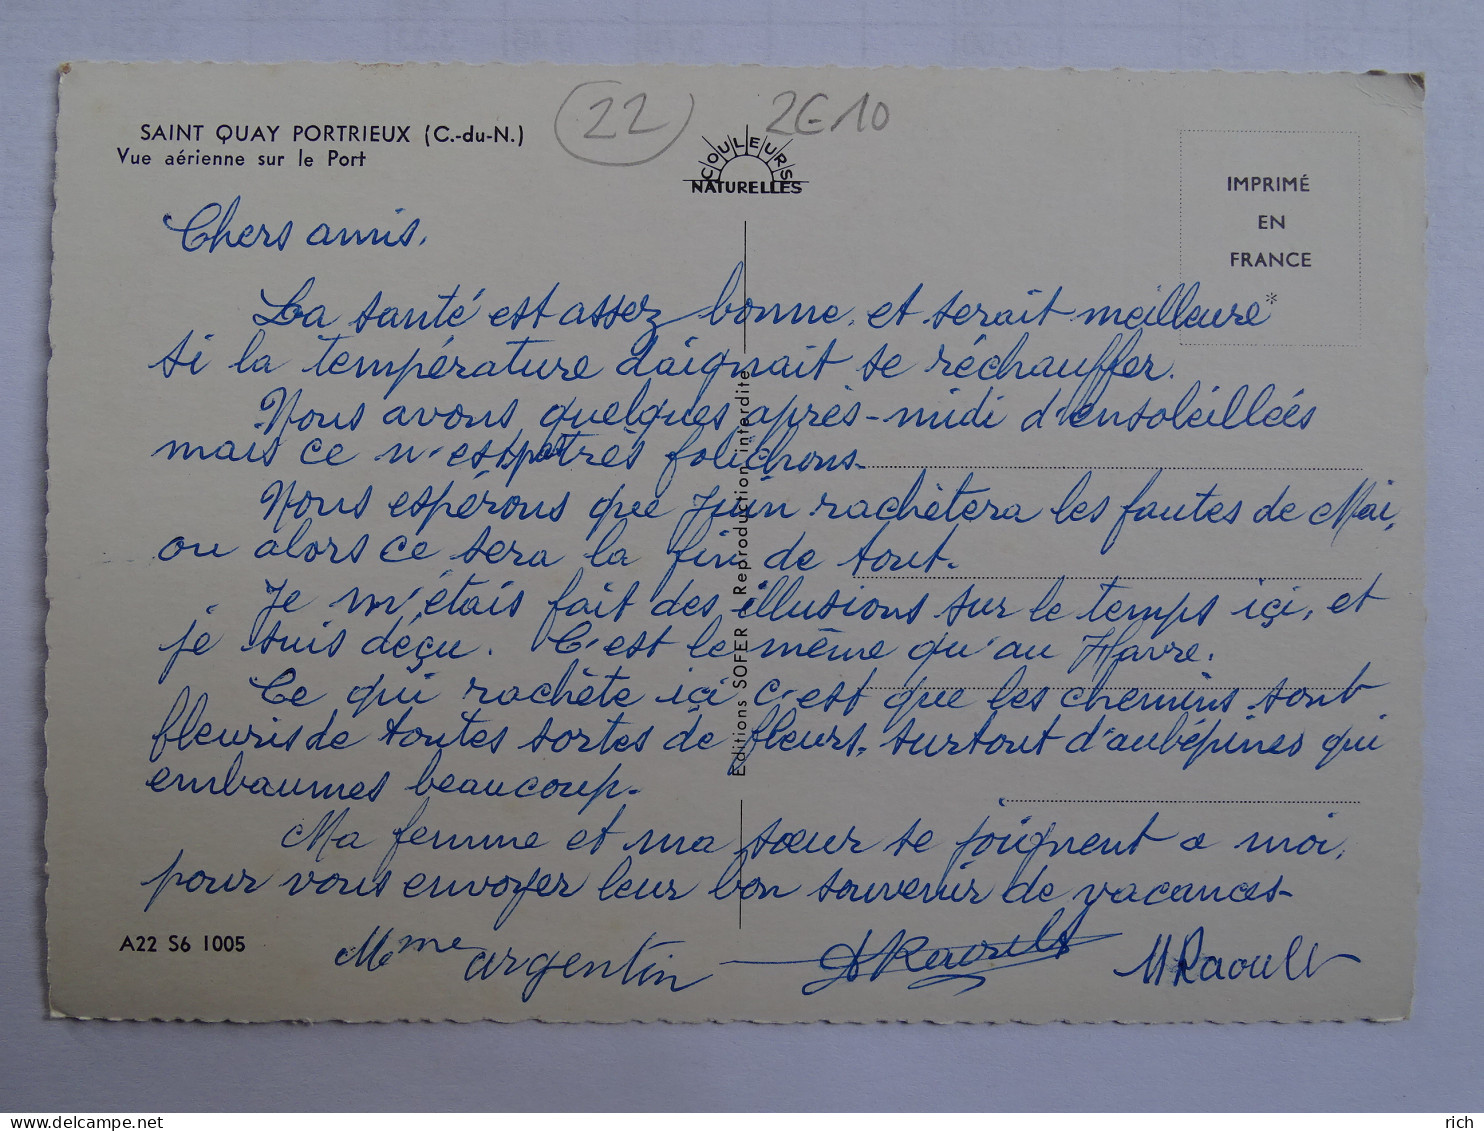 SAINT QUAY PORTRIEUX (C.-du-N.)
Vue aérienne sur le Port
22
2E10
COULEURS
NATURELLES
IMPRIMÉ
EN
FRANCE
*
Chers amis,
La santé est assez bonne, et serait meilleure
si la température daignait se réchauffer.
Nous avons quelques après-midi d'ensoleillées
mais ce n'est pas très folichons.
Nous espérons que Juin rachètera les fautes de Mai,
ou alors ce sera la fin de tout.
Je m'étais fait des illusions sur le temps içi, et
je suis déçu. C'est le même qu'au Havre.
Ce qui rachète içi c'est que les chemins sont
fleuris de toutes sortes de fleurs, surtout d'aubépines qui
embaumes beaucoup.
Ma femme et ma sœur se joignent a moi,
pour vous envoyer leur bon souvenir de vacances-
Mme argentin
Raoult
M Raoult
A22 S6 1005
Editions SOFER Reproduction interdite
rich
©delcampe.net